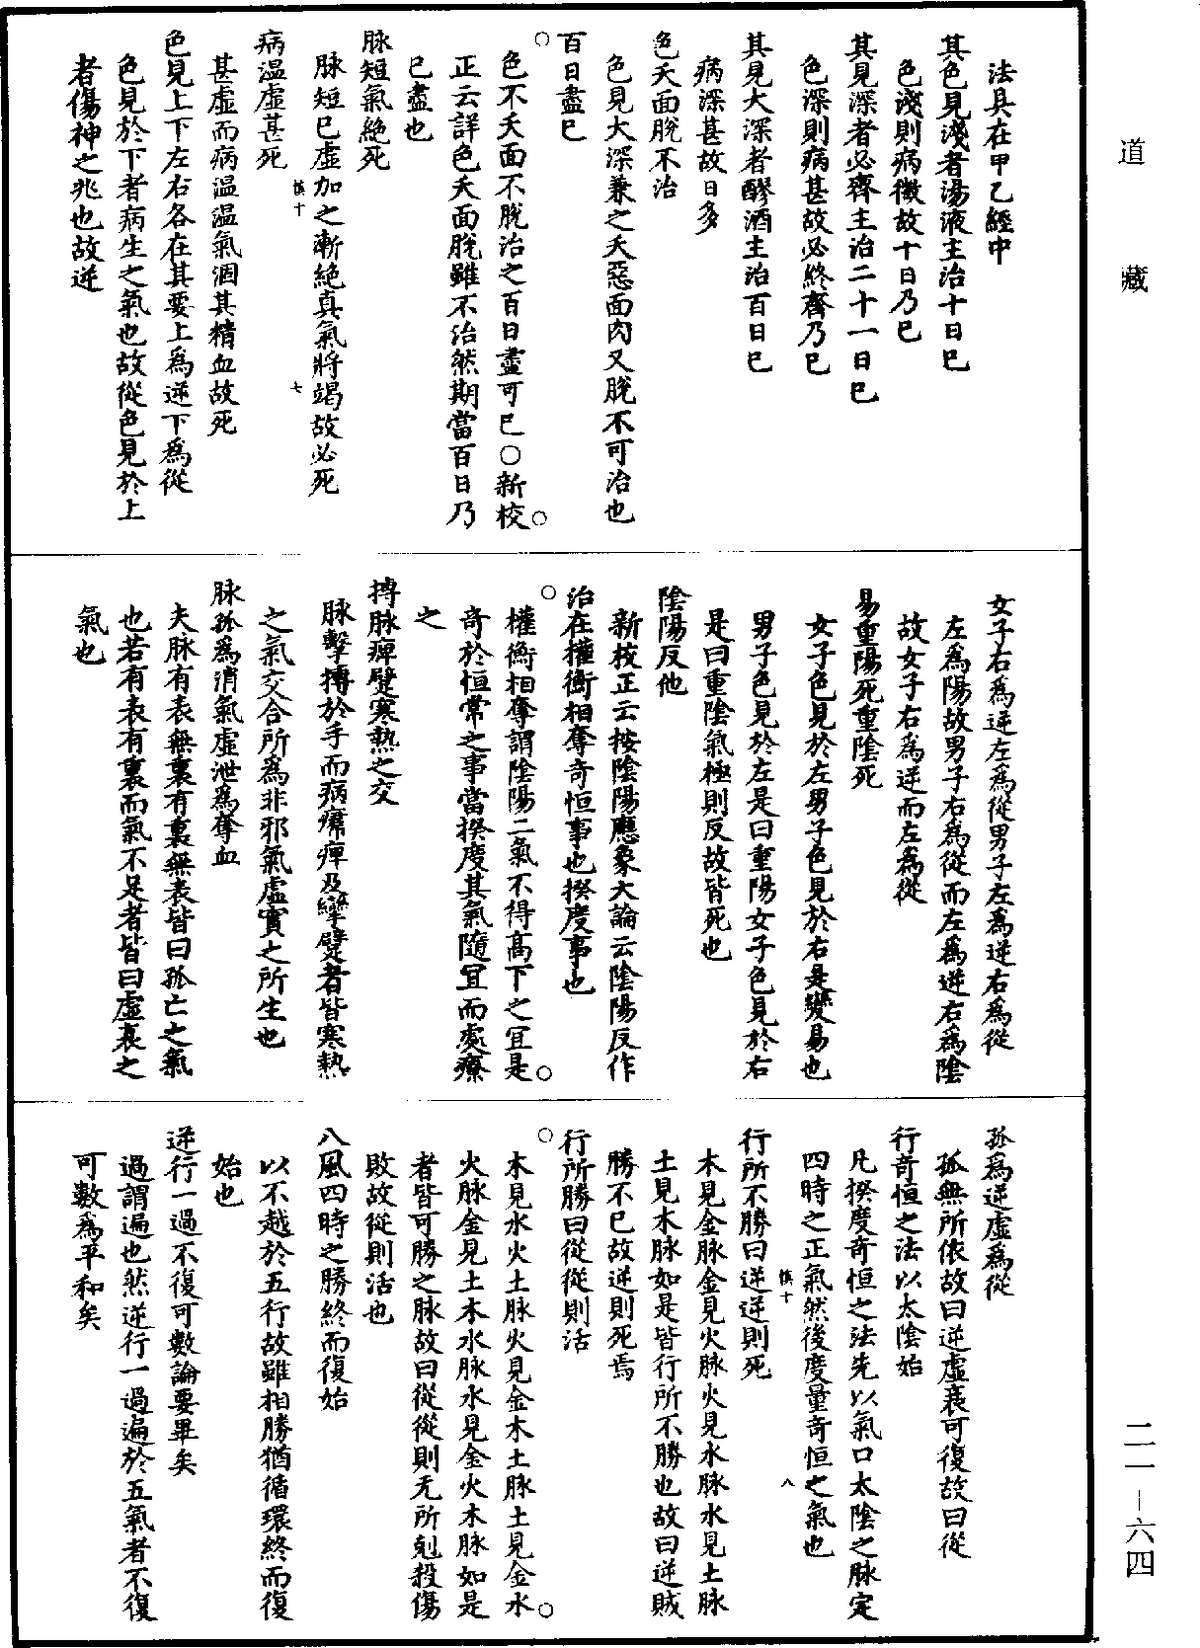 道藏
法具在甲乙經中
其色見淺者湯液主治十日已
色淺則病微故十日乃已
其見深者必齊主治二十一日已
色深則病甚故必終齊乃已
其見大深者醪酒主治百日已
病深甚故日多
色夭面脫不治
色見大深兼之夭惡面肉又脫不可治也
百日盡已
色不夭面不脫治之百日盡可已○新校
正云詳色夭面脫雖不治然期當百日乃
已盡也
脉短氣絕死
脉短已虛加之漸絕真氣將竭故必死
慎十 七
病溫虛甚死
甚虛而病溫溫氣涸其精血故死
色見上下左右各在其要上為逆下為從
色見於下者病生之氣也故從色見於上
者傷神之兆也故逆
女子右為逆左為從男子左為逆右為從
左為陽故男子右為從而左為逆右為陰
故女子右為逆而左為從
易重陽死重陰死
女子色見於左男子色見於右是變易也
男子色見於左是曰重陽女子色見於右
是曰重陰氣極則反故皆死也
陰陽反他
新校正云按陰陽應象大論云陰陽反作
治在權衡相奪奇恒事也揆度事也
權衡相奪謂陰陽二氣不得高下之宜是
奇於恒常之事當揆度其氣隨宜而處療
之
搏脉痺躄寒熱之交
脉擊搏於手而病𤸷痺及攣躄者皆寒熱
之氣交合所為非邪氣虛實之所生也
脉孤為消氣虛泄為奪血
夫脉有表無裏有裏無表皆曰孤亡之氣
也若有表有裏而氣不足者皆曰虛衰之
氣也
孤為逆虛為從
孤無所依故曰逆虛衰可復故曰從
行奇恒之法以太陰始
凡揆度奇恒之法先以氣口太陰之脉定
四時之正氣然後度量奇恒之氣也
行所不勝曰逆逆則死
慎十 八
木見金脉金見火脉火見水脉水見土脉
土見木脉如是皆行所不勝也故曰逆賊
勝不已故逆則死焉
行所勝曰從從則活
木見水火土脉火見金木土脉土見金水
火脉金見土木水脉水見金火木脉如是
者皆可勝之脉故曰從從則无所剋殺傷
敗故從則活也
八風四時之勝終而復始
以不越於五行故雖相勝猶循環終而復
始也
逆行一過不復可數論要畢矣
過謂遍也然逆行一過遍於五氣者不復
可數為平和矣
二一-六四